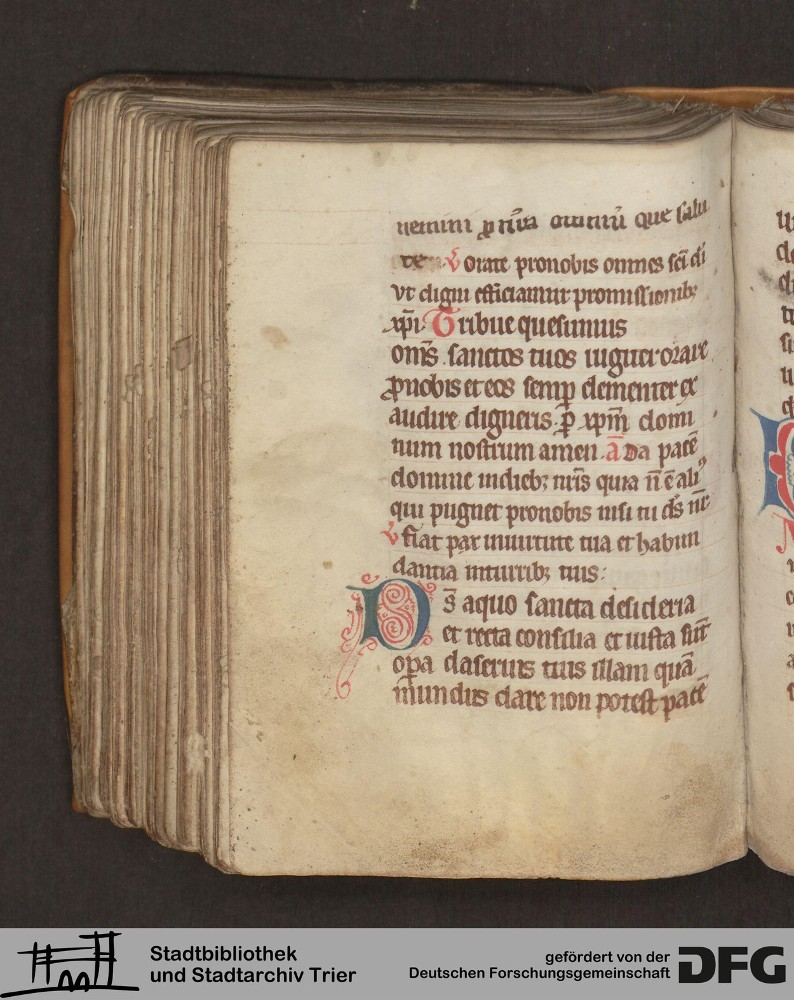 uemini p̱ nr̄a omniū que salu
te. v orate pronobis omnes sc̄i di
vt digni efficiamur promissionibꝫ
xp̄i. Tribue quesumus
om̄s sanctos tuos iugit᷑ orare
ꝓnobis et eos semp̱ clementer ex
audire digneris. p̱ xp̄m domi
num nostrum amen. ā Da pacē
domine indiebꝫ nr̄is quia n̄ ē ali9
qui pugnet pronobis nisi tu ds̄ nr̄
v fiat pax inuirtute tua et habun
dantia inturribꝫ tuis:
Ds̄ aquo sancta desideria
et recta consilia et iusta sūt
op̱a da seruis tuis illam quā
mundus dare non potest pacē
Stadtbibliothek
und Stadtarchiv Trier
gefördert von der
Deutschen Forschungsgemeinschaft
DFG